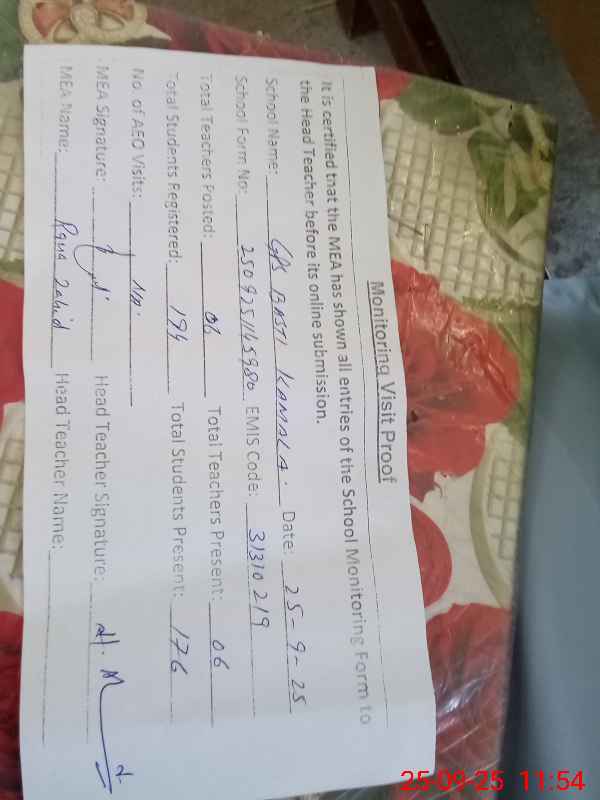 Monitoring Visit Proof
It is certified that the MEA has shown all entries of the School Monitoring Form to
the Head Teacher before its online submission.
School Name: GPS BASTI KAMALA. Date: 25-9-25
School Form No: 2509251165980 EMIS Code: 31310219
Total Teachers Posted: 06 Total Teachers Present: 06
Total Students Registered: 194 Total Students Present: 176
No. of AEO Visits:
MEA Signature: Head Teacher Signature:
MEA Name: Rana Zahid Head Teacher Name:
25-09-25 11:54